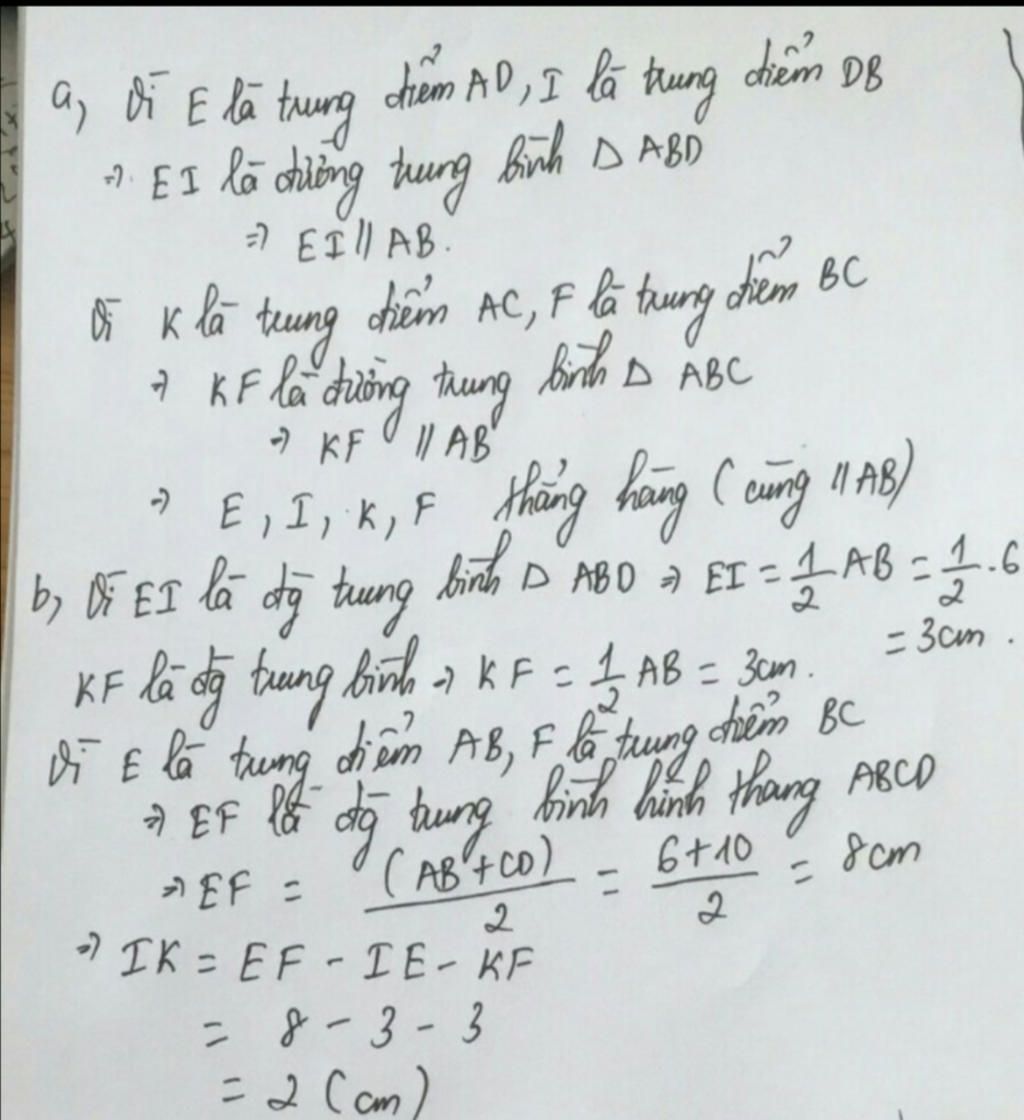 a, Vì E là trung điểm AD, I là trung điểm DB
=> EI là đường trung bình Δ ABD
=> EI // AB.
Vì K là trung điểm AC, F là trung điểm BC
=> KF là đường trung bình Δ ABC
=> KF // AB
=> E, I, K, F thẳng hàng (cùng // AB)
b, Vì EI là đg trung bình Δ ABD => EI = 1/2 AB = 1/2 . 6
= 3cm .
KF là đg trung bình => KF = 1/2 AB = 3cm.
Vì E là trung điểm AB, F là trung điểm BC
=> EF là đg trung bình hình thang ABCD
=> EF = (AB + CD)/2 = 6+10/2 = 8cm
=> IK = EF - IE - KF
= 8 - 3 - 3
= 2 (cm)